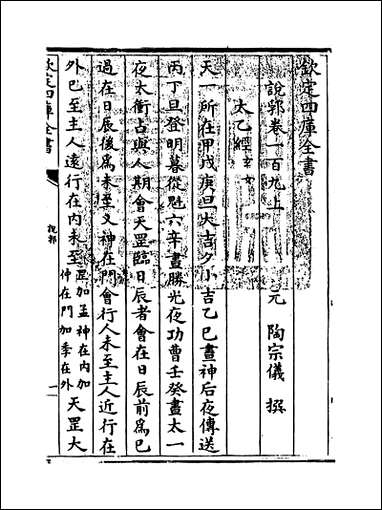 欽定四庫全書
說郛卷一百九上
元 陶宗儀 撰
太乙經
天一所在甲戌庚旦大吉夕小吉乙巳晝神后夜傳送
丙丁旦登明暮從魁六辛晝勝光夜功曹壬癸晝太一
夜太衝占與人期會天罡臨日辰者會在日辰前為已
過在日辰後為未至又神在門會行人未至主人近行在
外已至主人遠行在內未至罡加孟神在內加仲在門加季在外天罡大
欽定四庫全書
說郛
一